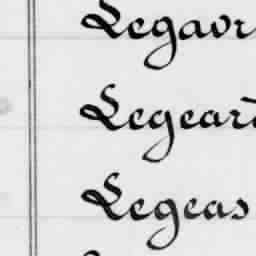 Legavr
Legeard
Legeas